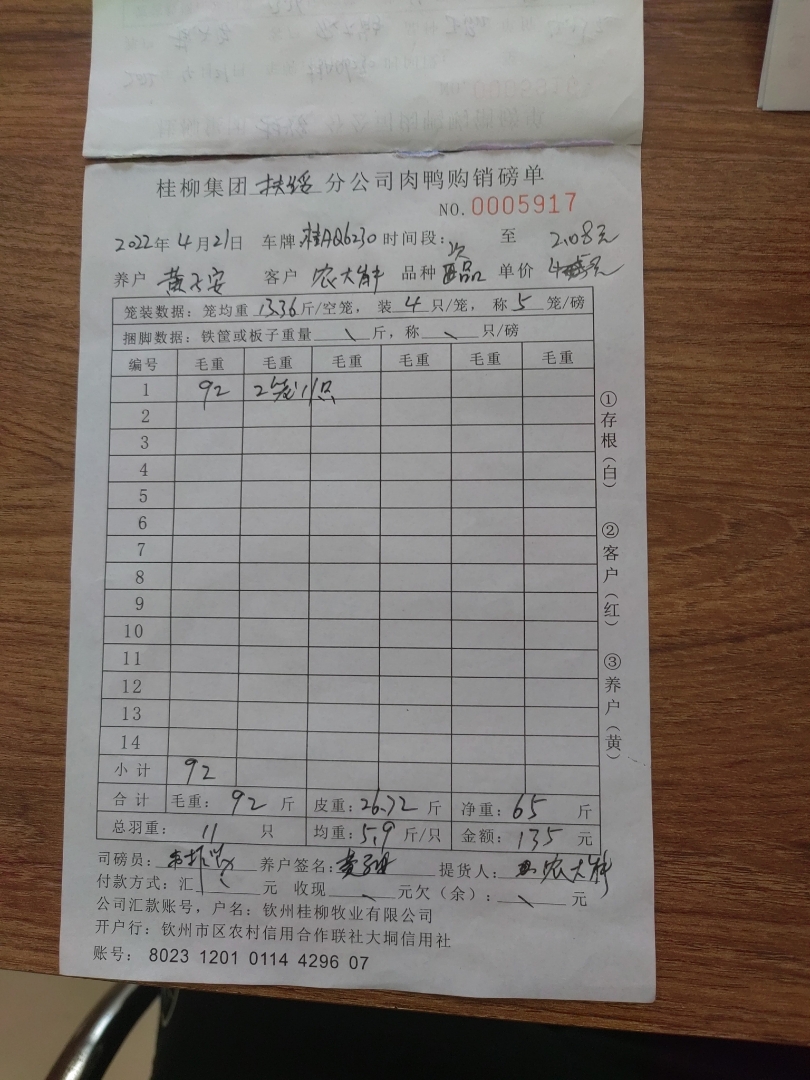 桂柳集团 扶绥 分公司肉鸭购销磅单
NO. 0005917
2022年4月21日 车牌:桂AQ6230 时间段: 至 2.08元
养户 黄子安 客户 农大 品种 次品 单价
笼装数据:笼均重 13.36 斤/空笼,装 4 只/笼,称 5 笼/磅
捆脚数据:铁筐或板子重量 \ 斤,称 \ 只/磅
编号 毛重 毛重 毛重 毛重 毛重 毛重
1 92 2笼11只
2
3
4
5
6
7
8
9
10
11
12
13
14
小计 92
合计 毛重: 92 斤 皮重: 26.72 斤 净重: 65 斤
总羽重: 11 只 均重: 5.9 斤/只 金额: 135 元
司磅员: 养户签名: 黄 提货人: 农大
付款方式:汇 元 收现 \ 元欠(余): \ 元
公司汇款账号,户名:钦州桂柳牧业有限公司
开户行:钦州市区农村信用合作联社大垌信用社
账号: 8023 1201 0114 4296 07
①存根(白) ②客户(红) ③养户(黄)